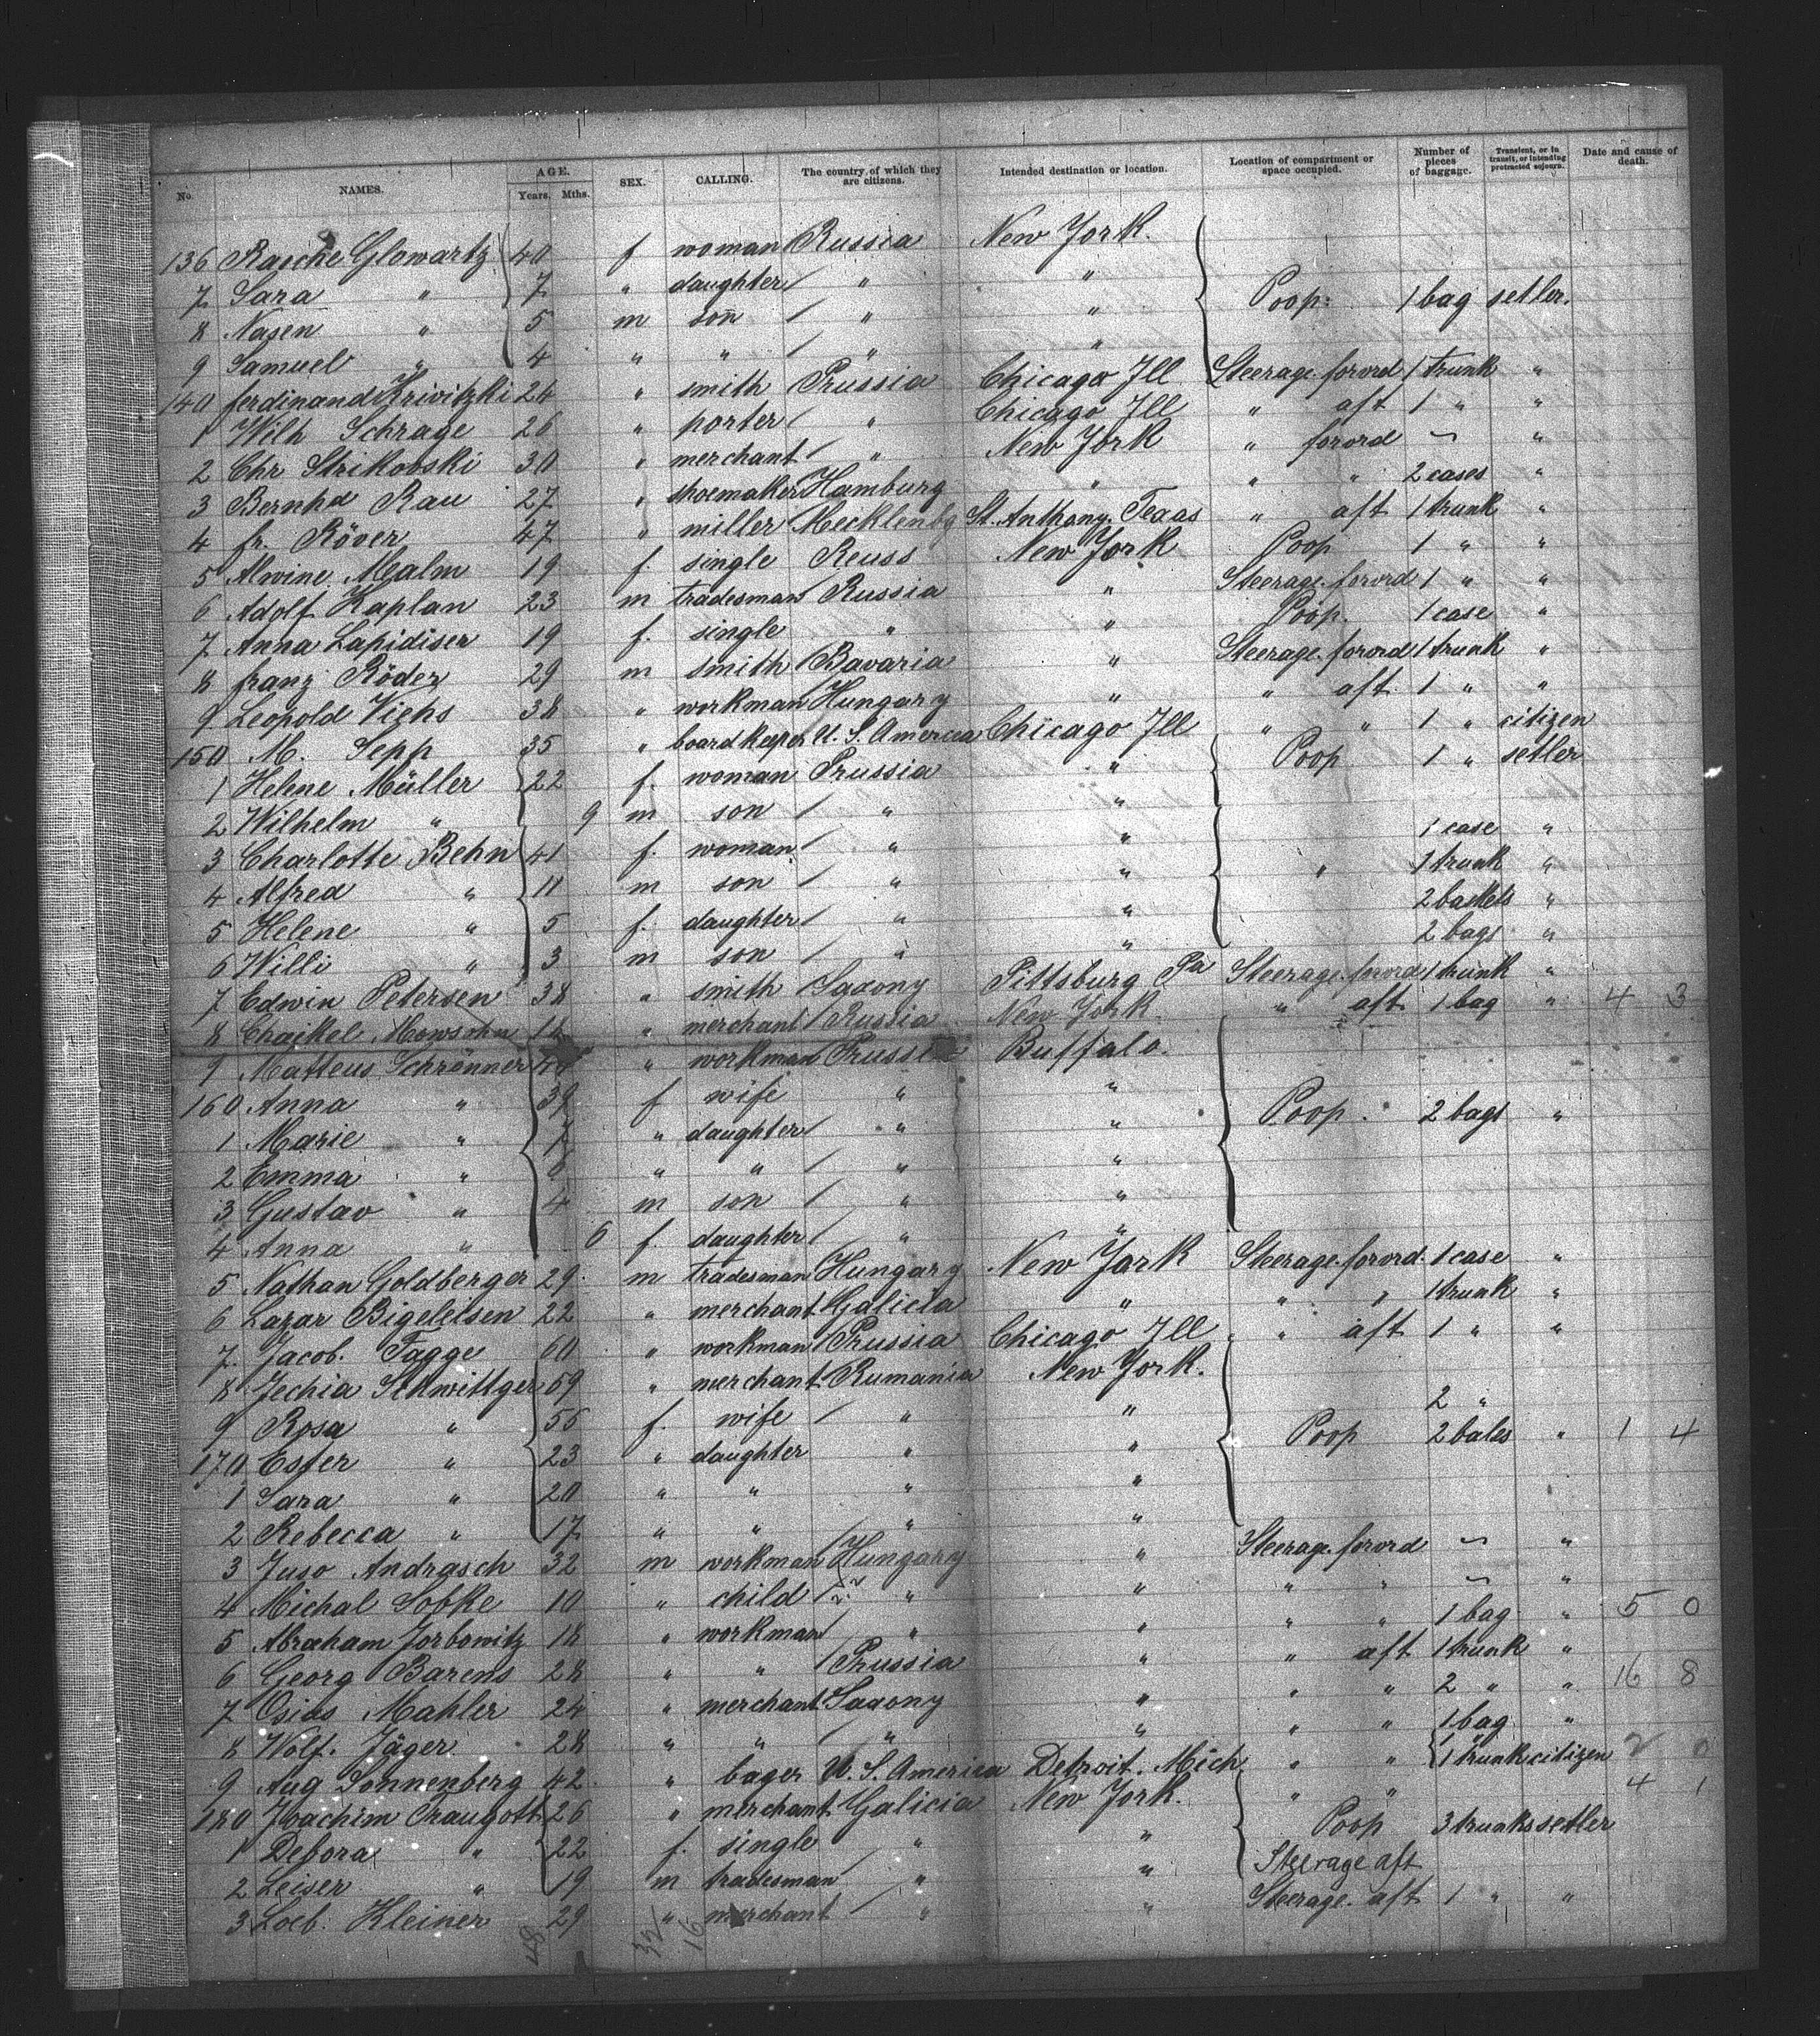 No. NAMES. AGE. Years. Mths. SEX. CALLING. The country of which they are citizens. Intended destination or location. Location of compartment or space occupied. Number of pieces of baggage. Transient, or in transit, or intending protracted sojourn. Date and cause of death.
136 Rasche Glowartz 40 f woman Russia New York.
7 Sara " 7 " daughter " "
8 Nasen " 5 m son " " Poop. 1 bag setler.
9 Samuel " 4 " " " "
140 ferdinand Krivitzki 24 " smith Prussia Chicago Ill Steerage. forord 1 trunk "
1 Wilh Schrage 26 " porter " Chicago Ill " aft 1 " "
2 Chr Strikovski 30 " merchant " New York " forord ~ "
3 Bernhd Rau 27 " shoemaker Hamburg " " " 2 cases "
4 fr. Röver 47 " miller Mecklenbg St. Anthony. Texas " aft 1 trunk "
5 Alwine Malm 19 f. single Reuss New York Poop 1 " "
6 Adolf Kaplan 23 m tradesman Russia " Steerage. forord 1 " "
7 Anna Lapidiser 19 f. single " " Poop. 1 case "
8 franz Röder 29 m smith Bavaria " Steerage. forord 1 trunk "
9 Leopold Viehs 38 " workman Hungary " " aft. 1 " "
150 M. Sepp 35 " board keeper U. S. America Chicago Ill " " 1 " citizen
1 Helene Müller 22 f. woman Prussia " Poop 1 " setler
2 Wilhelm " 9 m son " "
3 Charlotte Behn 41 f. woman " " 1 case "
4 Alfred " 11 m son " " " 1 trunk "
5 Helene " 5 f. daughter " " 2 baskets "
6 Willi " 3 m son " " 2 bags "
7 Edwin Petersen 38 " smith Saxony Pittsburg Pa Steerage. forord 1 trunk "
8 Chaikel Mowsohn 18 " merchant Russia New York. " aft 1 bag " 4 3
9 Matteus Schrönner " workman Prussia Buffalo.
160 Anna " 39 f wife " "
1 Marie " 7 " daughter " " Poop. 2 bags "
2 Emma " " " " "
3 Gustav " 4 m son " "
4 Anna " 6 f. daughter " "
5 Nathan Goldberger 29. m tradesman Hungary New York Steerage. forord. 1 case "
6 Lazar Bigeleisen 22 " merchant Galicia " " " 1 trunk "
7. Jacob. Tagge 60 " workman Prussia Chicago Ill " aft 1 " "
8 Jechia Schwittger 59 " merchant Rumania New York.
9 Rosa " 55 f. wife " " 2 "
170 Ester " 23 " daughter " " Poop 2 bales " 1 4
1 Sara " 20 " " " "
2 Rebecca " 17 " " " "
3 Juso Andrasch 32 m workman Hungary " Steerage. forord ~ "
4 Michal Sobke 10 " child " " " " ~ "
5 Abraham Jorbowitz 18 " workman " " " " 1 bag " 5 0
6 Georg Barens 28 " " Prussia " " aft 1 trunk "
7 Osias Mahler 24 " merchant Saxony " " " 2 " " 16 8
8 Wolf. Jäger 28 " " " " " " 1 bag "
9 Aug Sonnenberg 42 " U. S. America Detroit. Mich. " " 1 trunk citizen 2 0
180 Joachim Traugott 26 " merchant Galicia New York. " " 4 1
1 Debora " 22 f. single " " Poop 3 trunks setler
2 Leiser " 19 m tradesman " " Steerage aft
3 Loeb. Kleiner 29 " merchant " " Steerage. aft 1 " "
48 32 16